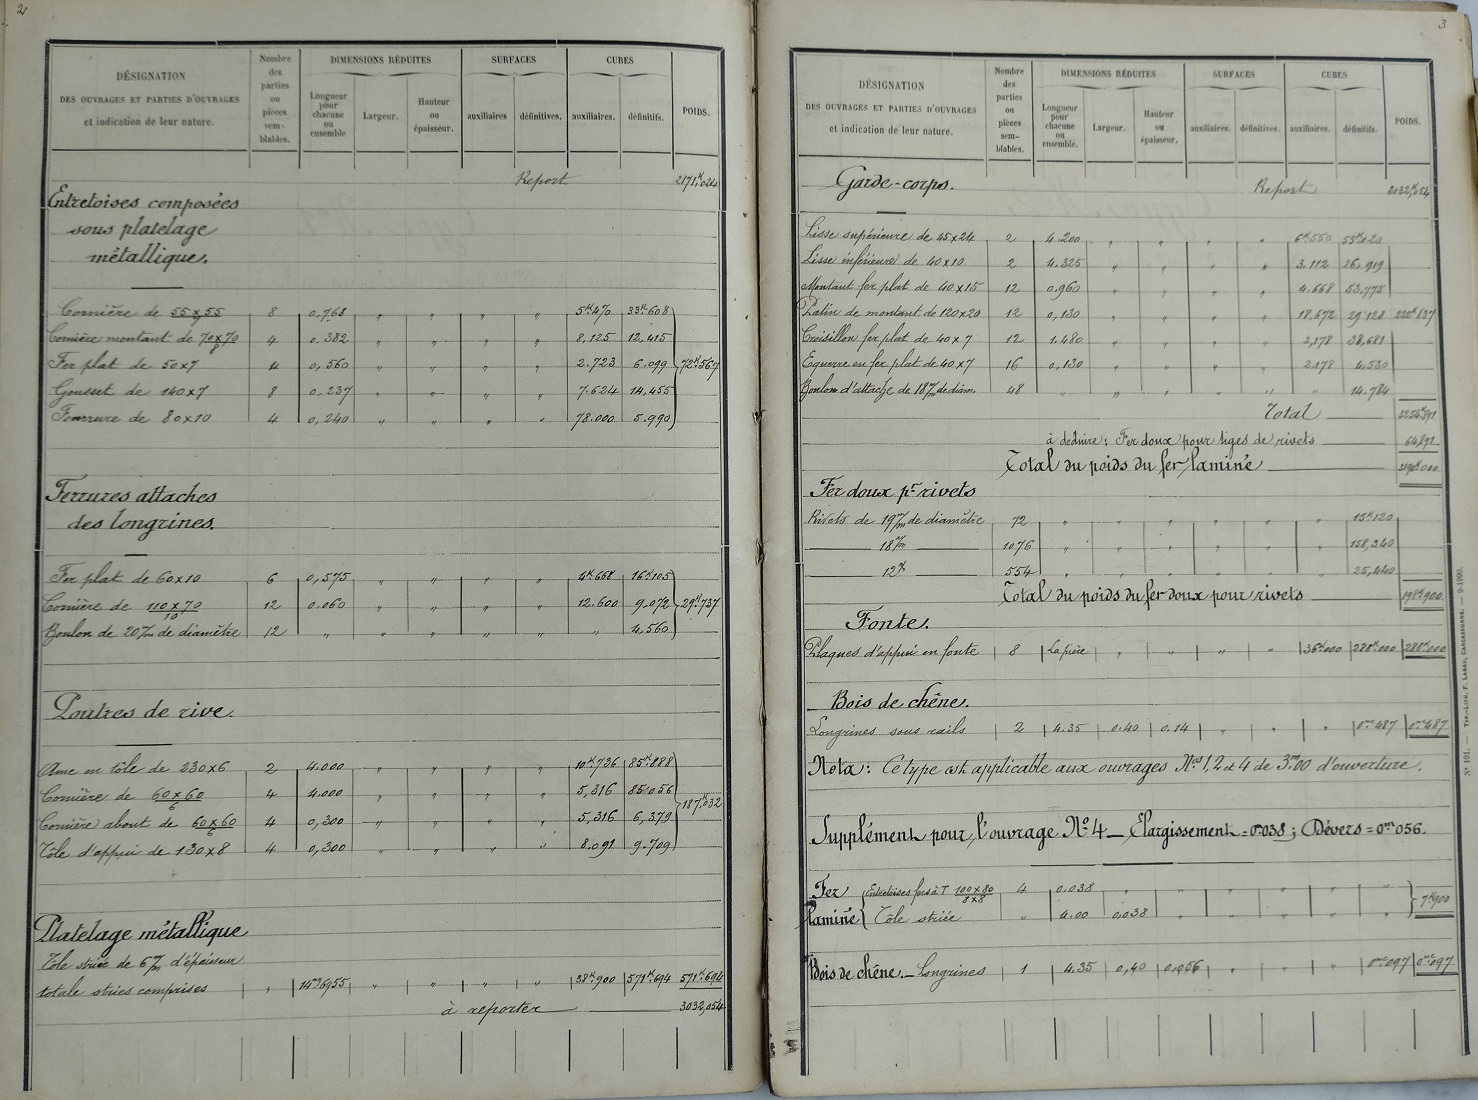 2
DÉSIGNATION DES OUVRAGES ET PARTIES D'OUVRAGES et indication de leur nature. Nombre des parties ou pièces sem- blables. DIMENSIONS RÉDUITES Longueur pour chacune ou ensemble Largeur. Hauteur ou épaisseur. SURFACES auxiliaires. définitives. CUBES auxiliaires. définitifs. POIDS.
Report 2171K,024
Entretoises composées
sous platelage
métallique.
Cornière de 55x55/7 8 0,768 " " " " 5K470 33K608
Cornière montant de 70x70/8 4 0.382 " " " " 8,125 12,415
Fer plat de 50x7 4 0,560 " " " " 2.723 6.099 72K567
Gousset de 140x7 8 0.237 " " " " 7.624 14,455
Fourrure de 80x10 4 0,240 " " " " 78.000 5.990
Ferrures attaches
des longrines.
Fer plat de 60x10 6 0,575 " " " " 4K668 16K105
Cornière de 110x70/10 12 0.060 " " " " 12.600 9.072 29K737
Boulon de 20m/m de diamètre 12 " " " " " " 4,560
Poutres de rive.
Ame en tôle de 230x6 2 4.000 " " " " 10K736 85K888
Cornière de 60x60/6 4 4.000 " " " " 5,316 85.056
187K,032
Cornière about de 60x60/6 4 0,300 " " " " 5,316 6,379
Tôle d'appui de 130x8 4 0,300 " " " " 8.091 9.709
Platelage métallique
Tôle striée de 6m/m d'épaisseur
totale stries comprises " 14m6955 " " " " 38K,900 571K,694 571K,694
à reporter 3032,054
3
DÉSIGNATION DES OUVRAGES ET PARTIES D'OUVRAGES et indication de leur nature. Nombre des parties ou pièces sem- blables. DIMENSIONS RÉDUITES Longueur pour chacune ou ensemble. Largeur. Hauteur ou épaisseur. SURFACES auxiliaires. définitives. CUBES auxiliaires. définitifs. POIDS.
Garde-corps. Report 3032K,054
Lisse supérieure de 45x24 2 4.200 " " " " 6K550 55K020
Lisse inférieure de 40x10 2 4.325 " " " " 3.112 26.919
Montant fer plat de 40x15 12 0,960 " " " " 4.668 53,775
Patin de montant de 120x20 12 0,130 " " " " 18,672 29.128 222K837
Croisillon fer plat de 40x7 12 1.480 " " " " 2,178 38,681
Equerre en fer plat de 40x7 16 0,130 " " " " 2.178 4,530
Boulon d'attache de 18m/m de diam. 48 " " " " " " 14.784
Total 3254K891
à déduire: Fer doux pour tiges de rivets 64,891
Total du poids du fer laminé 3190K000
Fer doux pr. rivets
Rivets de 19m/m de diamètre 72 " " " " " " 15K120
18m/m 1076 " " " " " " 158,340
12m/m 554 " " " " " " 25,440
Total du poids du fer doux pour rivets 198K900
Fonte.
Plaques d'appui en fonte 8 La pièce " " " " 36K000 288K000 288K000
Bois de chêne.
Longrines sous rails 2 4.35 0.40 0.14 " " " 0mc487 0mc487
Nota: Ce type est applicable aux ouvrages Nos 1, 2 et 4 de 3m00 d'ouverture.
Supplément pour l'ouvrage No 4 _ Elargissement = 0m038; Dévers = 0m056.
Fer Entretoises fers à T 100x80/8x8 4 0.038 " " " " " "
7K900
laminé Tôle striée " 4.00 0,038 " " " " "
Bois de chêne. _ Longrines 1 4.35 0,40 0,056 " " " 0mc097 0mc097
No 101. — TYP.-LITH. P. LABAU, CARCASSONNE. — 9-1900.